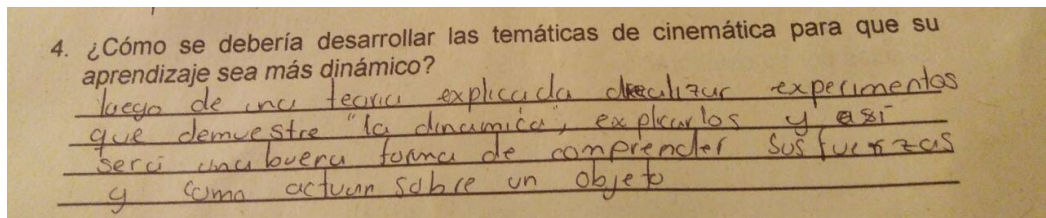 4. ¿Cómo se debería desarrollar las temáticas de cinemática para que su
aprendizaje sea más dinámico?
luego de una teoria explicada realizar experimentos
que demuestre "la dinamica", explicarlos y asi
será una buena forma de comprender sus fuerzas
y como actuan sobre un objeto